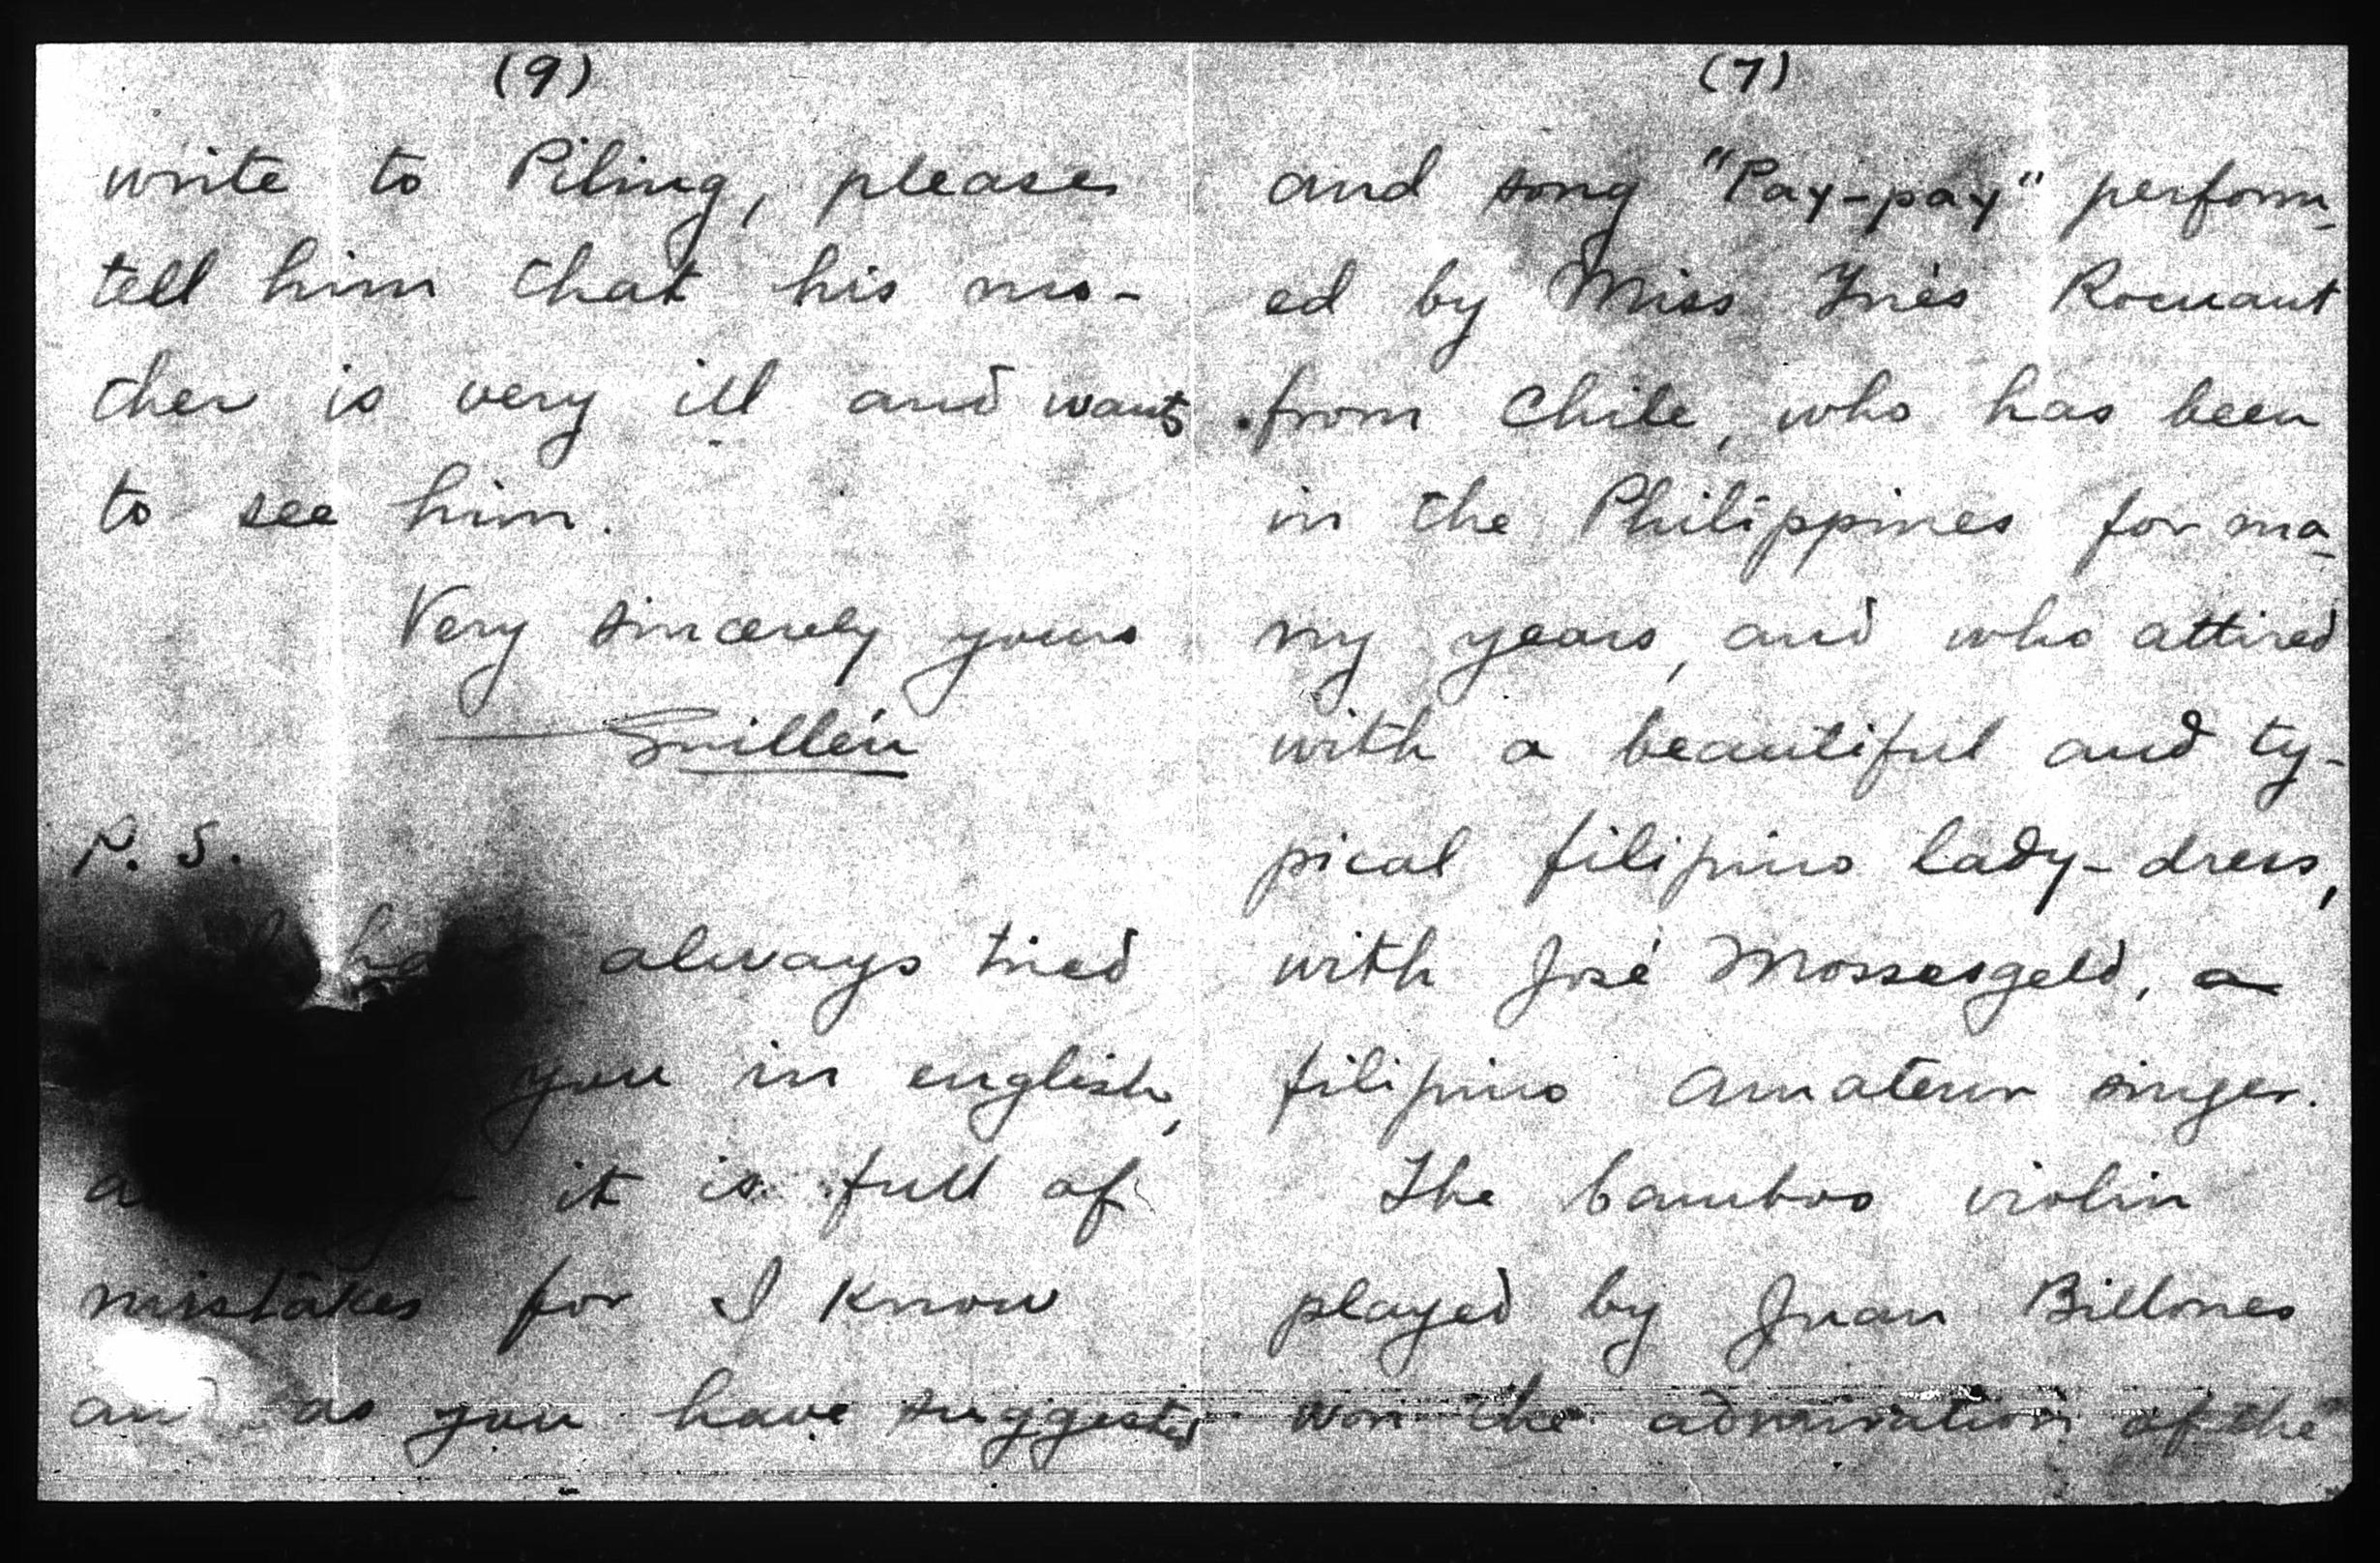 (9)
write to Piling, please
tell him that his mo-
ther is very ill and wants
to see him.
Very sincerely yours
Guillén
P. S.
always tried
you in english,
it is full of
mistakes for I know
and as you have suggested
(7)
and song "Pay-pay" perform-
ed by Miss Inés Rocuant
from Chile, who has been
in the Philippines for ma-
ny years, and who attired
with a beautiful and ty-
pical filipino lady-dress,
with José Mossesgeld, a
filipino amateur singer.
The bamboo violin
played by Juan Billones
won the admiration of the